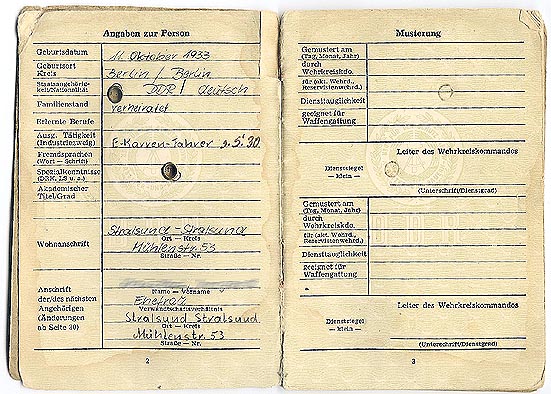 Angaben zur Person
Geburtsdatum 11. Oktober 1933
Geburtsort
Kreis Berlin / Berlin
Staatsangehörig-
keit/Nationalität DDR / deutsch
Familienstand verheiratet
Erlernte Berufe
Ausg. Tätigkeit
(Industriezweig) E-Karren-Fahrer s. S. 30.
Fremdsprachen
(Wort — Schrift)
Spezialkenntnisse
(DRK, LS u. a.)
Akademischer
Titel/Grad
Stralsund - Stralsund
Ort — Kreis
Wohnanschrift Mühlenstr. 53
Straße — Nr.
Anschrift
der/des nächsten
Angehörigen
(Änderungen
ab Seite 30)
Name — Vorname
Ehefrau
Verwandtschaftsverhältnis
Stralsund Stralsund
Ort — Kreis
Mühlenstr. 53
Straße — Nr.
2
Musterung
Gemustert am
(Tag, Monat, Jahr)
durch
Wehrkreiskdo.
für (akt. Wehrd.,
Reservistenwehrd.)
Diensttauglichkeit
geeignet für
Waffengattung
Leiter des Wehrkreiskommandos
Dienstsiegel
— klein —
(Unterschrift/Dienstgrad)
Gemustert am
(Tag, Monat, Jahr)
durch
Wehrkreiskdo.
für (akt. Wehrd.,
Reservistenwehrd.)
Diensttauglichkeit
geeignet für
Waffengattung
Leiter des Wehrkreiskommandos
Dienstsiegel
— klein —
(Unterschrift/Dienstgrad)
3